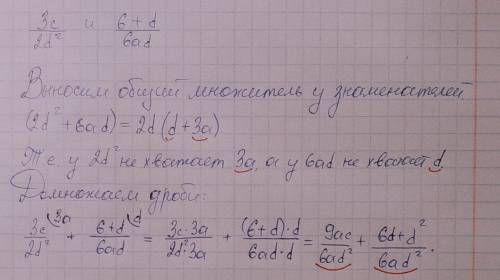 3c/2d² и 6+d/6ad
Выносим общий множитель у знаменателей
(2d² + 6ad) = 2d (d + 3a)
Т.е. у 2d² не хватает 3a, а у 6ad не хватает d.
Домножаем дроби:
3c/2d² (3a + 6+d/6ad (d = 3c·3a/2d²·3a + (6+d)·d/6ad·d = 9ac/6ad² + 6d+d²/6ad².